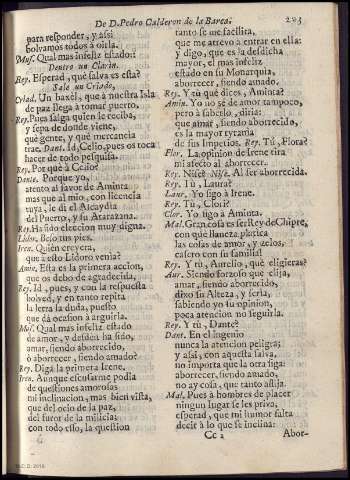 De D. Pedro Calderon de la Barca. 203
para responder, y assi
bolvamos todos à oirla.
Mus. Qual mas infeliz estado: &c.
Dentro un Clarin.
Rey. Esperad, què salva es esta?
Sale un Criado.
Criad. Un baxèl, que à nuestra Isla
de paz llega à tomar puerto.
Rey. Pues salga quien le reciba,
y sepa de donde viene,
que gente, y què mercancia
trae. Dant. Id, Celio, pues os toca
hacer de todo pesquisa.
Rey. Por què à Celio?
Dant. Porque yo,
atento al favor de Aminta
mas que al mio, con licencia
tuya, le di el Alcaydia
del Puerto, y su Atarazana.
Rey. Ha sido eleccion muy digna.
Lidor. Beso tus pies.
Iren. Quien creyera,
que à esto Lidoro venia?
Amin. Esta es la primera accion,
que os debo de agradecida.
Rey. Id, pues, y con la respuesta
bolved, y en tanto repita
la letra la duda, puesto
que dà ocasion à arguirla.
Mus. Qual mas infeliz estado
de amor, y desden ha sido,
amar, siendo aborrecido,
ò aborrecer, siendo amado?
Rey. Diga la primera Irene.
Iren. Aunque escusarme podia
de questiones amorosas
mi inclinacion, mas bien vista,
que del ocio de la paz,
del furor de la milicia:
con todo esso, la question
tanto se me facilita,
que me atrevo à entrar en ella:
y digo, que es la desdicha
mayor, el mas infeliz
estado en su Monarquia,
aborrecer, siendo amado.
Rey. Y tù què dices, Aminta?
Amin. Yo no sè de amor tampoco,
pero à saberlo, diria:
que amar, siendo aborrecido,
es la mayor tyrania
de sus Imperios. Rey. Tù, Flora?
Flor. La opinion de Irene tira
mi afecto al aborrecer.
Rey. Nise? Nis. Al ser aborrecida.
Rey. Tù, Laura?
Laur. Yo sigo à Irene.
Rey. Tù, Clori?
Clor. Yo sigo à Aminta.
Mal. Gran cosa es ser Rey de Chipre,
con què llaneza platica
las cosas de amor, y zelos,
casero con su familia!
Rey. Y tù, Aurelio, què eligieras?
Aur. Siendo forzoso que elija,
amar, siendo aborrecido,
dixo su Alteza, y seria,
sabiendo yo su opinion,
poca atencion no seguirla.
Rey. Y tù, Dante?
Dant. En el ingenio
nunca la atencion peligra;
y assi, con aquesta salva,
no importa que la otra siga:
aborrecer, siendo amado,
no ay cosa, que tanto aflija.
Mal. Pues à hombres de placer
ningun lugar se les priva,
esperad, que mi humor falta
decir à lo que se inclina:
Cc 2 Abor-